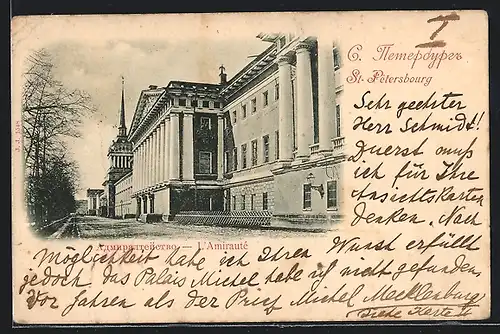 I
С. Петербургъ
St. Pétersbourg
Адмиралтейство. — L'Amirauté
Sehr geehrter
Herr Schmidt!
Zuerst muß
ich für Ihre
Ansichtskarten
danken. Nach
Möglichkeit habe ich Ihren Wunsch erfüllt
jedoch das Palais Michel habe ich nicht gefunden.
Vor Jahren als der Prief Michel Mecklenburg
Siehe Karte II